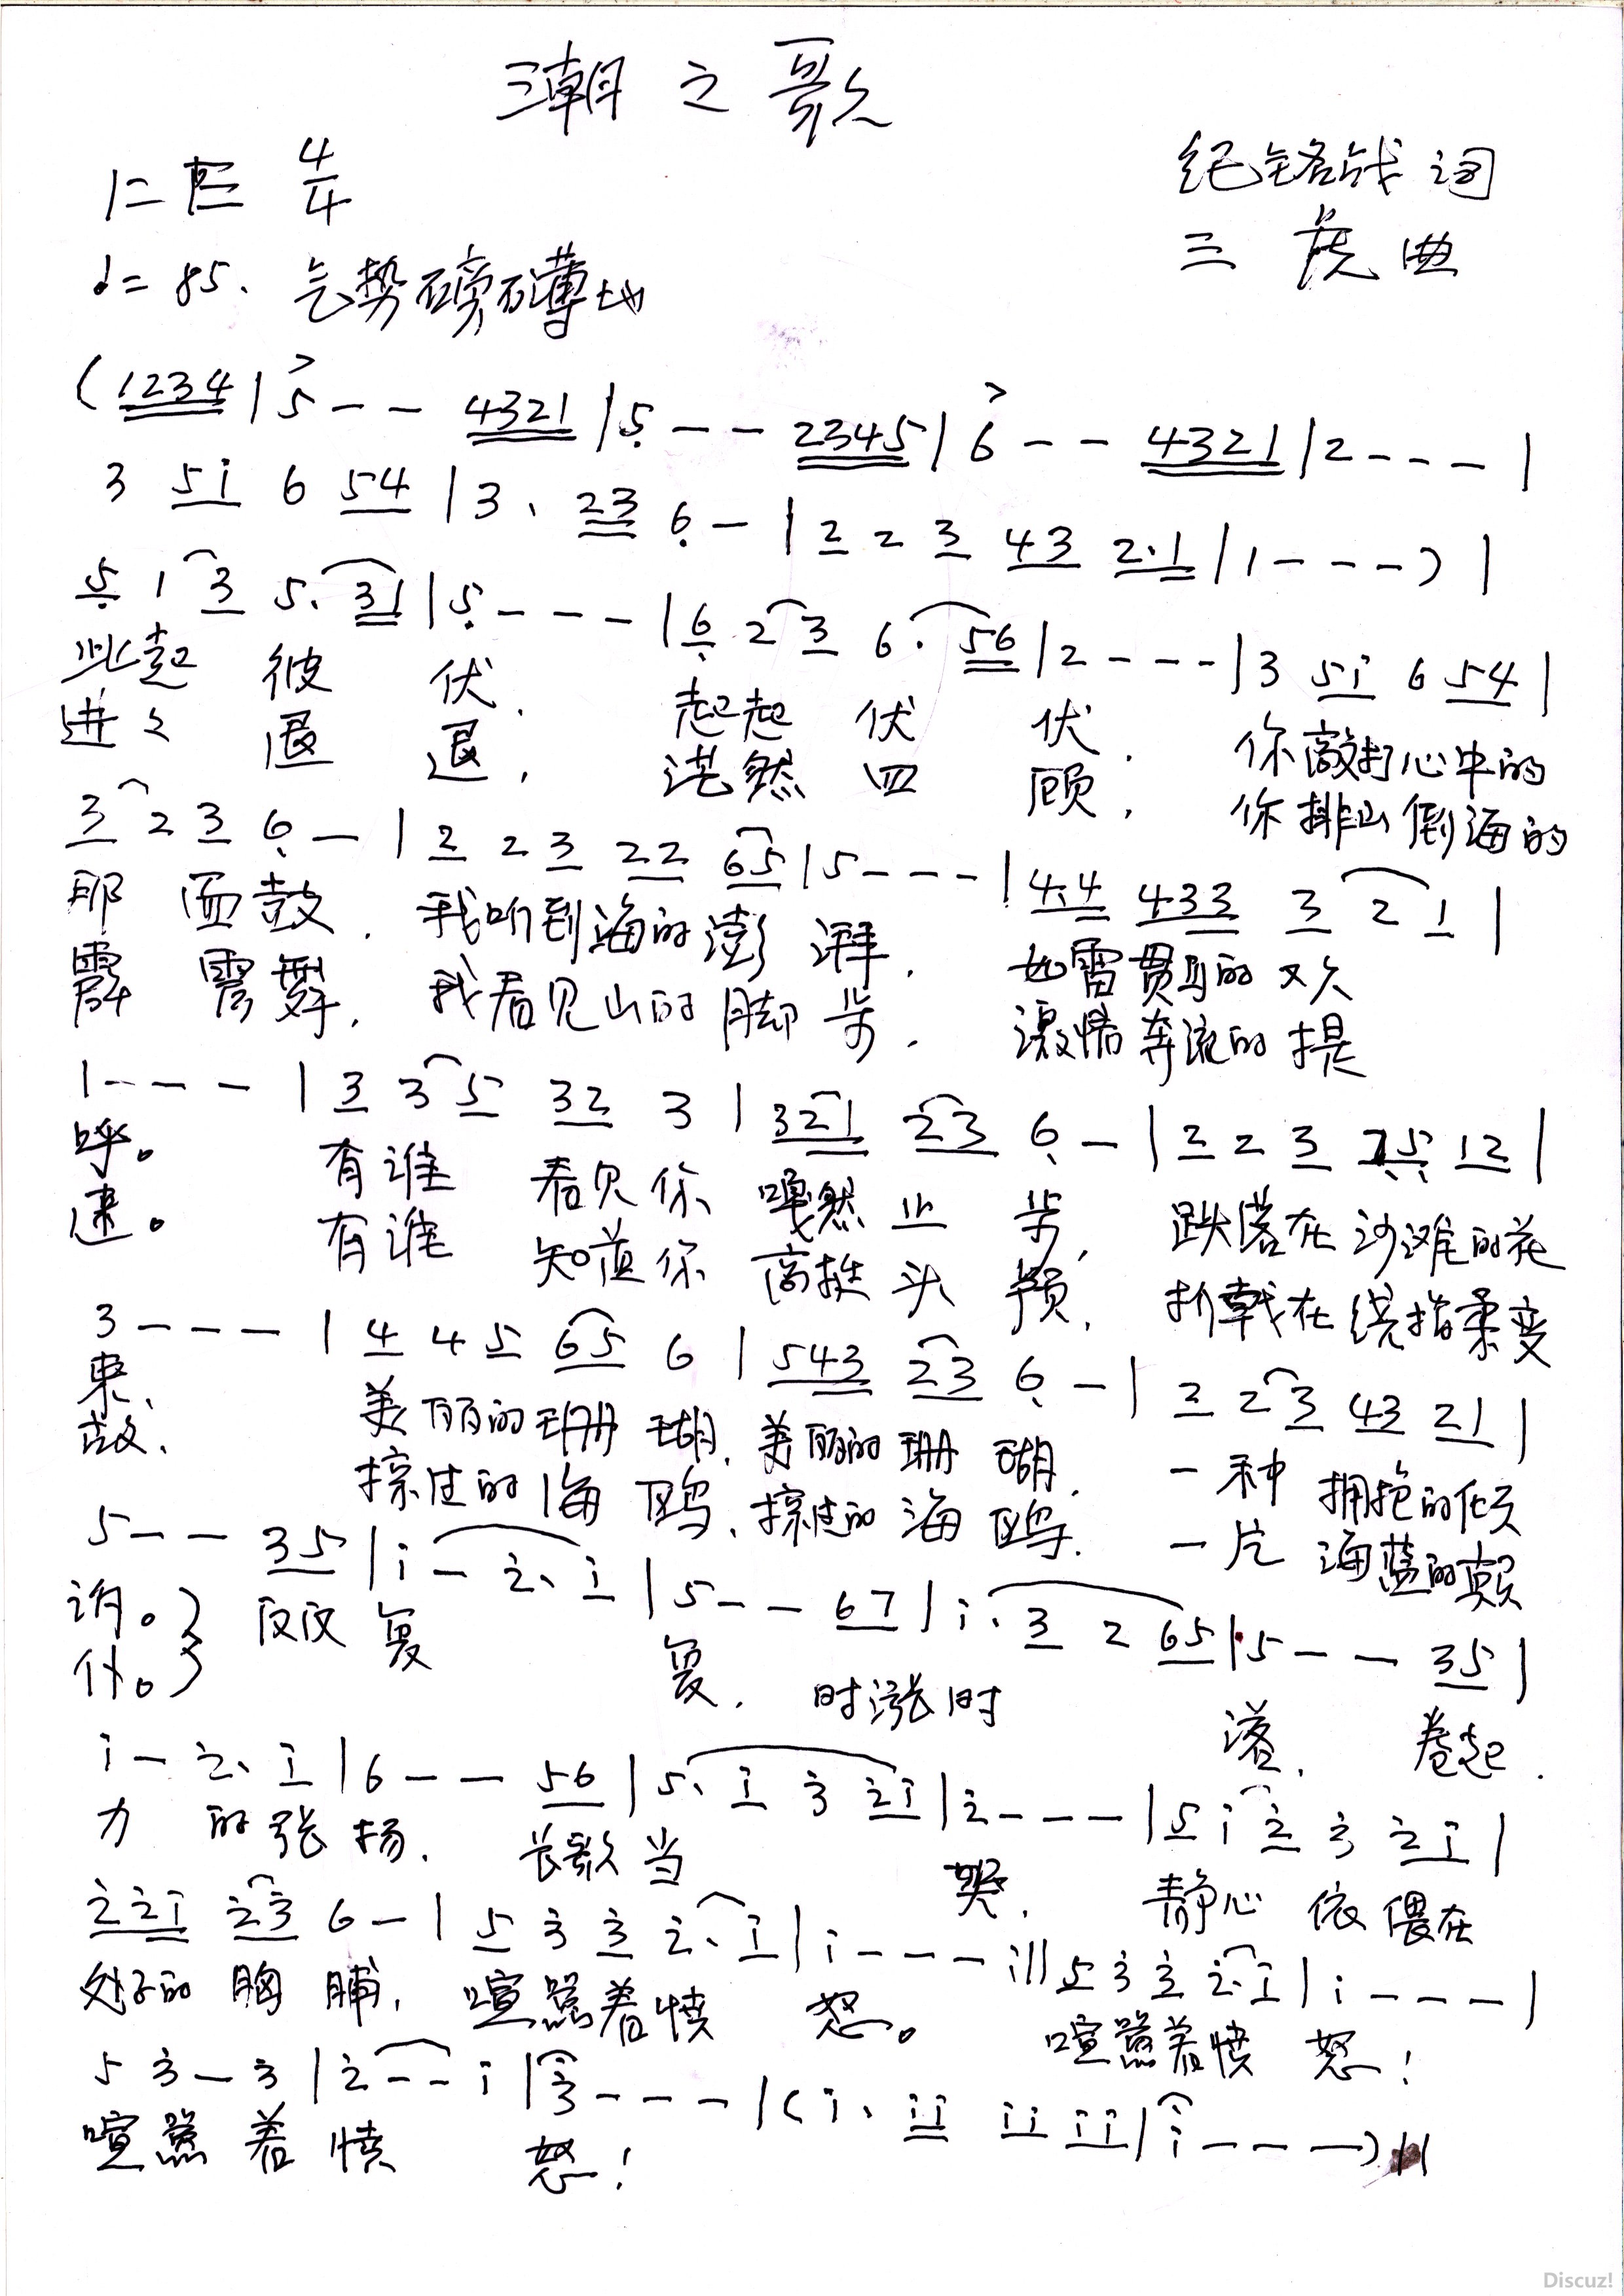 潮之歌
1=E 4/4
纪铭战 词
♩=85. 气势磅礴地
三虎 曲
(1234 | 5 - - 4321 | 5 - - 2345 | 6 - - 4321 | 2 - - - |
3 5i 6 54 | 3. 23 6 - | 2 2 3 43 2.1 | 1 - - - ) |
5 1 3 5. 31 | 5 - - - | 6 2 3 6. 56 | 2 - - - | 3 5i 6 54 |
此起 彼 伏. 起起 伏 伏. 你敲打心中的
进々 退 退, 茫然 四 顾, 你排山倒海的
3 2 3 6 - | 2 2 3 22 65 | 5 - - - | 4.4 433 3 2 1 |
那 面鼓. 我听到海的澎 湃. 如雷贯耳的欢
霹雳舞, 我看见山的脚 步. 激情奔流的提
1 - - - | 3 3 5 32 3 | 321 23 6 - | 2 2 3 75 12 |
呼。 有谁 看见你 嘎然 止 步, 跌落在沙滩的花
速。 有谁 知道你 高挂 头 颅, 折戟在绕指柔变
3 - - - | 4 4 5 65 6 | 543 23 6 - | 2 2 3 43 21 |
束、 美丽的珊 瑚. 美丽的 珊 瑚. 一种 拥抱的倾
故、 擦过的海 鸥、擦过的 海 鸥. 一片 海蓝的
5 - - 35 | i - 2. i | 5 - - 67 | i. 3 2 65 | 5 - - 35 |
诉。} 反反 复 复. 时涨时 落. 卷起.
仆。}
i - 2. i | 6 - - 56 | 5. i 3 2i | 2 - - - | 5 i 2 3 2i |
力 的张扬. 长歌当 哭. 静心 依偎在
22i 23 6 - | 5 3 3 2. i | i - - - :|| 5 3 3 2. i | i - - - |
处子的 胸 脯. 喧嚣着愤 怒。 喧嚣着愤 怒!
5 3 - 3 | 2 - - i | 3 - - - | (i. ii ii ii | i - - - ) ||
喧嚣 着 愤 怒!
Discuz!